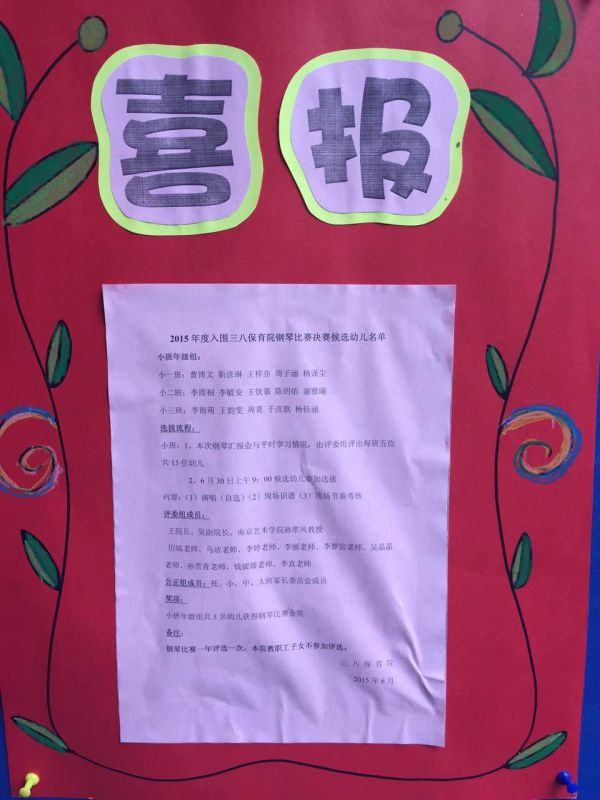 喜报
2015 年度入围三八保育院钢琴比赛决赛候选幼儿名单
小班年级组：
小一班：曹博文 靳彦琳 王梓亦 周子涵 杨谨尘
小二班：李雨桐 李毓安 王钦慕 陈玥佑 谢雅曦
小三班：李雨萌 王韵雯 周莫 于彦歆 杨钰涵
选拔流程：
小班：1、本次钢琴汇报会与平时学习情况，由评委组评出每班五位
共 15 位幼儿
2、6 月 30 日上午 9：00 候选幼儿参加选拔
内容：（1）演唱（自选）（2）现场识谱（3）现场节奏考核
评委组成员：
王院长、吴副院长、南京艺术学院孙翠凤教授
厉瑶老师、马洁老师、李婷老师、李丽老师、李梦萱老师、吴晶晶
老师、孙雪青老师、钱媛媛老师、李真老师
公正组成员：托、小、中、大班家长委员会成员
奖项：
小班年级组共 5 名幼儿获得钢琴比赛金奖
备注：
钢琴比赛一年评选一次，本院教职工子女不参加评选。
三八保育院
2015 年 6 月